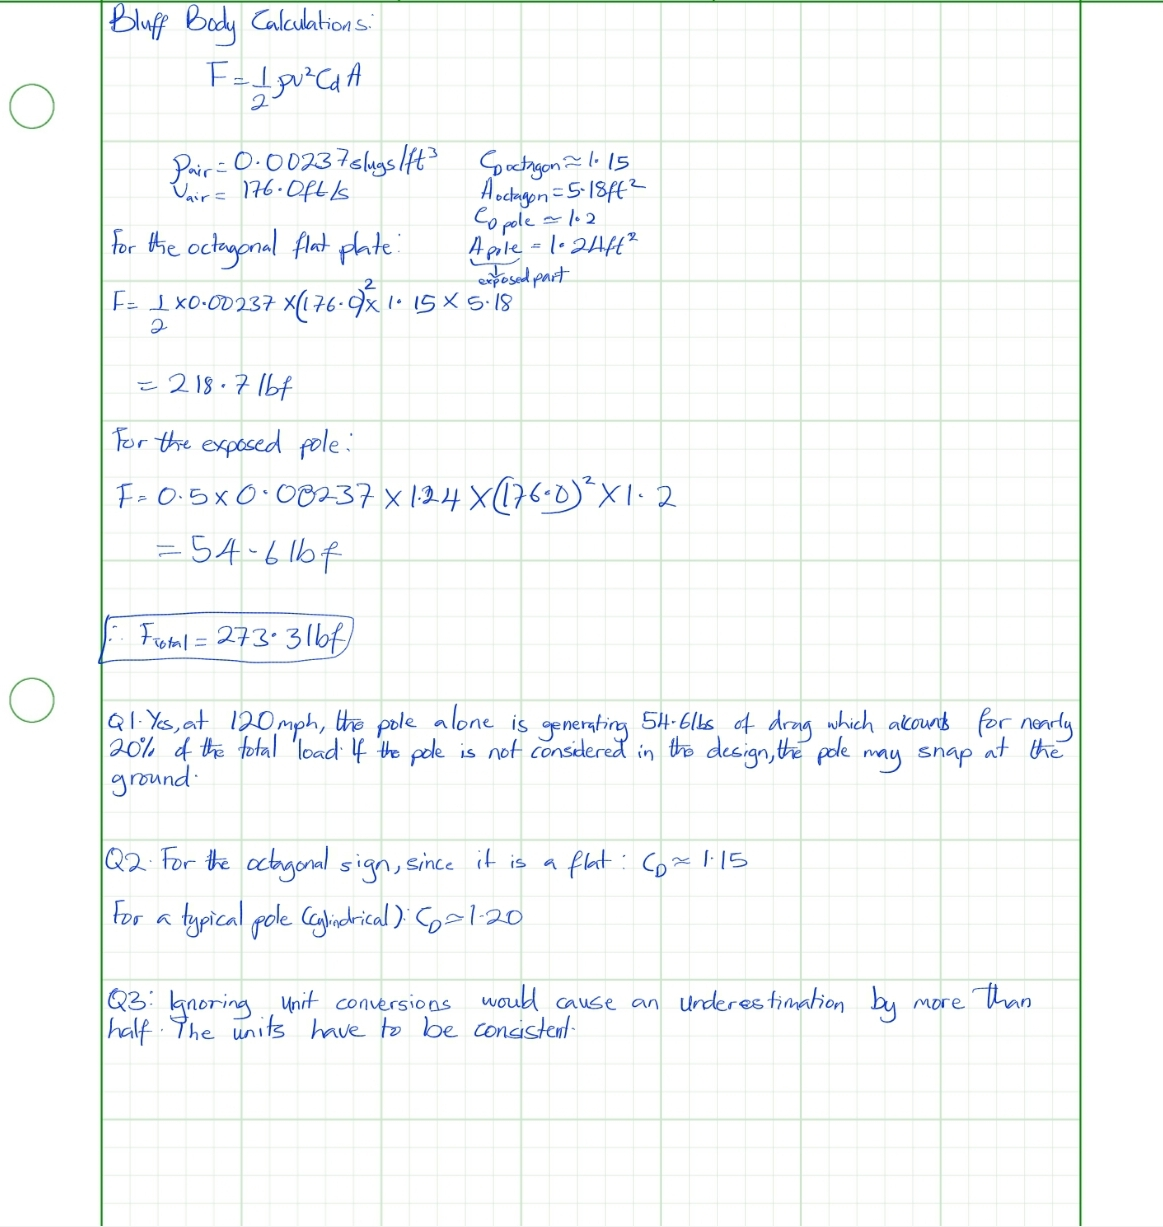 Bluff Body Calculations:
F = 1/2 ρv²CdA
ρair = 0.00237slugs/ft³
Vair = 176.0ft/s
CDoctagon ≈ 1.15
Aoctagon = 5.18ft²
CD pole ≈ 1.2
Apole = 1.24ft²
exposed part
For the octagonal flat plate:
F = 1/2 × 0.00237 × (176.0)² × 1.15 × 5.18
= 218.7 lbf
For the exposed pole:
F = 0.5 × 0.00237 × 1.24 × (176.0)² × 1.2
= 54.6 lbf
∴ Ftotal = 273.3 lbf
Q1. Yes, at 120mph, the pole alone is generating 54.6lbs of drag which accounts for nearly
20% of the total load. If the pole is not considered in the design, the pole may snap at the
ground.
Q2. For the octagonal sign, since it is a flat: CD ≈ 1.15
For a typical pole (cylindrical): CD ≈ 1.20
Q3: Ignoring unit conversions would cause an underestimation by more than
half. The units have to be consistent.